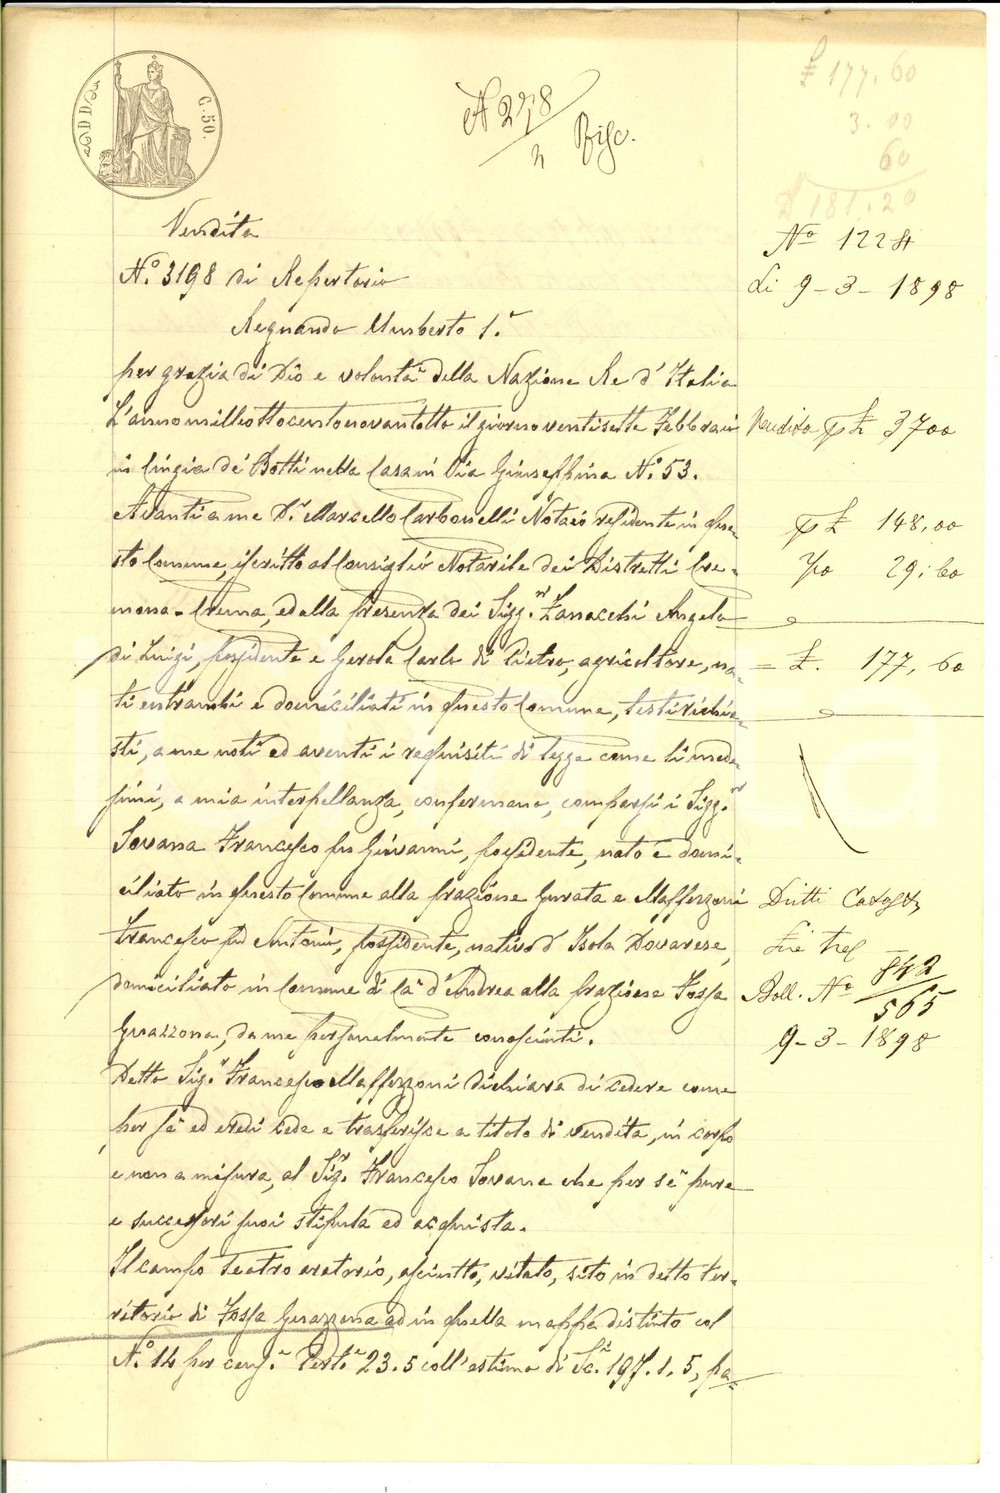 C. 50.
N 278
Vendita
N.° 3198 di Repertorio
Regnando Umberto 1.°
per grazia di Dio e volontà della Nazione Re d'Italia
L'anno milleottocentonovantotto il giorno ventisette Febbraio
in Cingia de' Botti nella Casa in Via Giuseppina N.° 53.
Avanti a me D.r Marcello Carbonelli Notaio residente in que=
sto Comune, iscritto al Consiglio Notarile dei Distretti Cre=
mona-Crema, ed alla presenza dei Sigg.ri Zanacchi Angelo
di Luigi, possidente e Gerola Carlo di Pietro, agricoltore, na=
ti entrambi e domiciliati in questo Comune, testi richie=
sti, a me noti ed aventi i requisiti di legge come li mede=
simi, a mia interpellanza, confermano, comparsi i Sigg.ri
Sovana Francesco fu Giovanni, possidente, nato e domi=
ciliato in questo Comune alla frazione Gurata e Maffezzoni
Francesco fu Antonio, possidente, nativo d'Isola Dovarese,
domiciliato in Comune di Cà d'Andrea alla frazione Fossa
Guazzona, da me personalmente conosciuti.
Detto Sig.r Francesco Maffezzoni dichiara di cedere come
per sè ed eredi cede e trasferisce a titolo di vendita, in corpo
e non a misura, al Sig.r Francesco Sovana che per sè pure
e successori suoi stipula ed acquista.
Il campo Teatro aratorio, asciutto, vitato, sito in detto ter=
ritorio di Fossa Guazzona ed in quella mappa distinto col
N.° 14 per cens.e Pert.e 23.5 coll'estimo di Sc.i 197.1.5, pa=
£ 177.60
3.00
60
£ 181.20
N° 1228
Li 9-3-1898
Vendita £ 3700
£ 148,00
29,60
= £. 177,60
Dritti
Lire tre
Boll. N° 842
565
9-3-1898